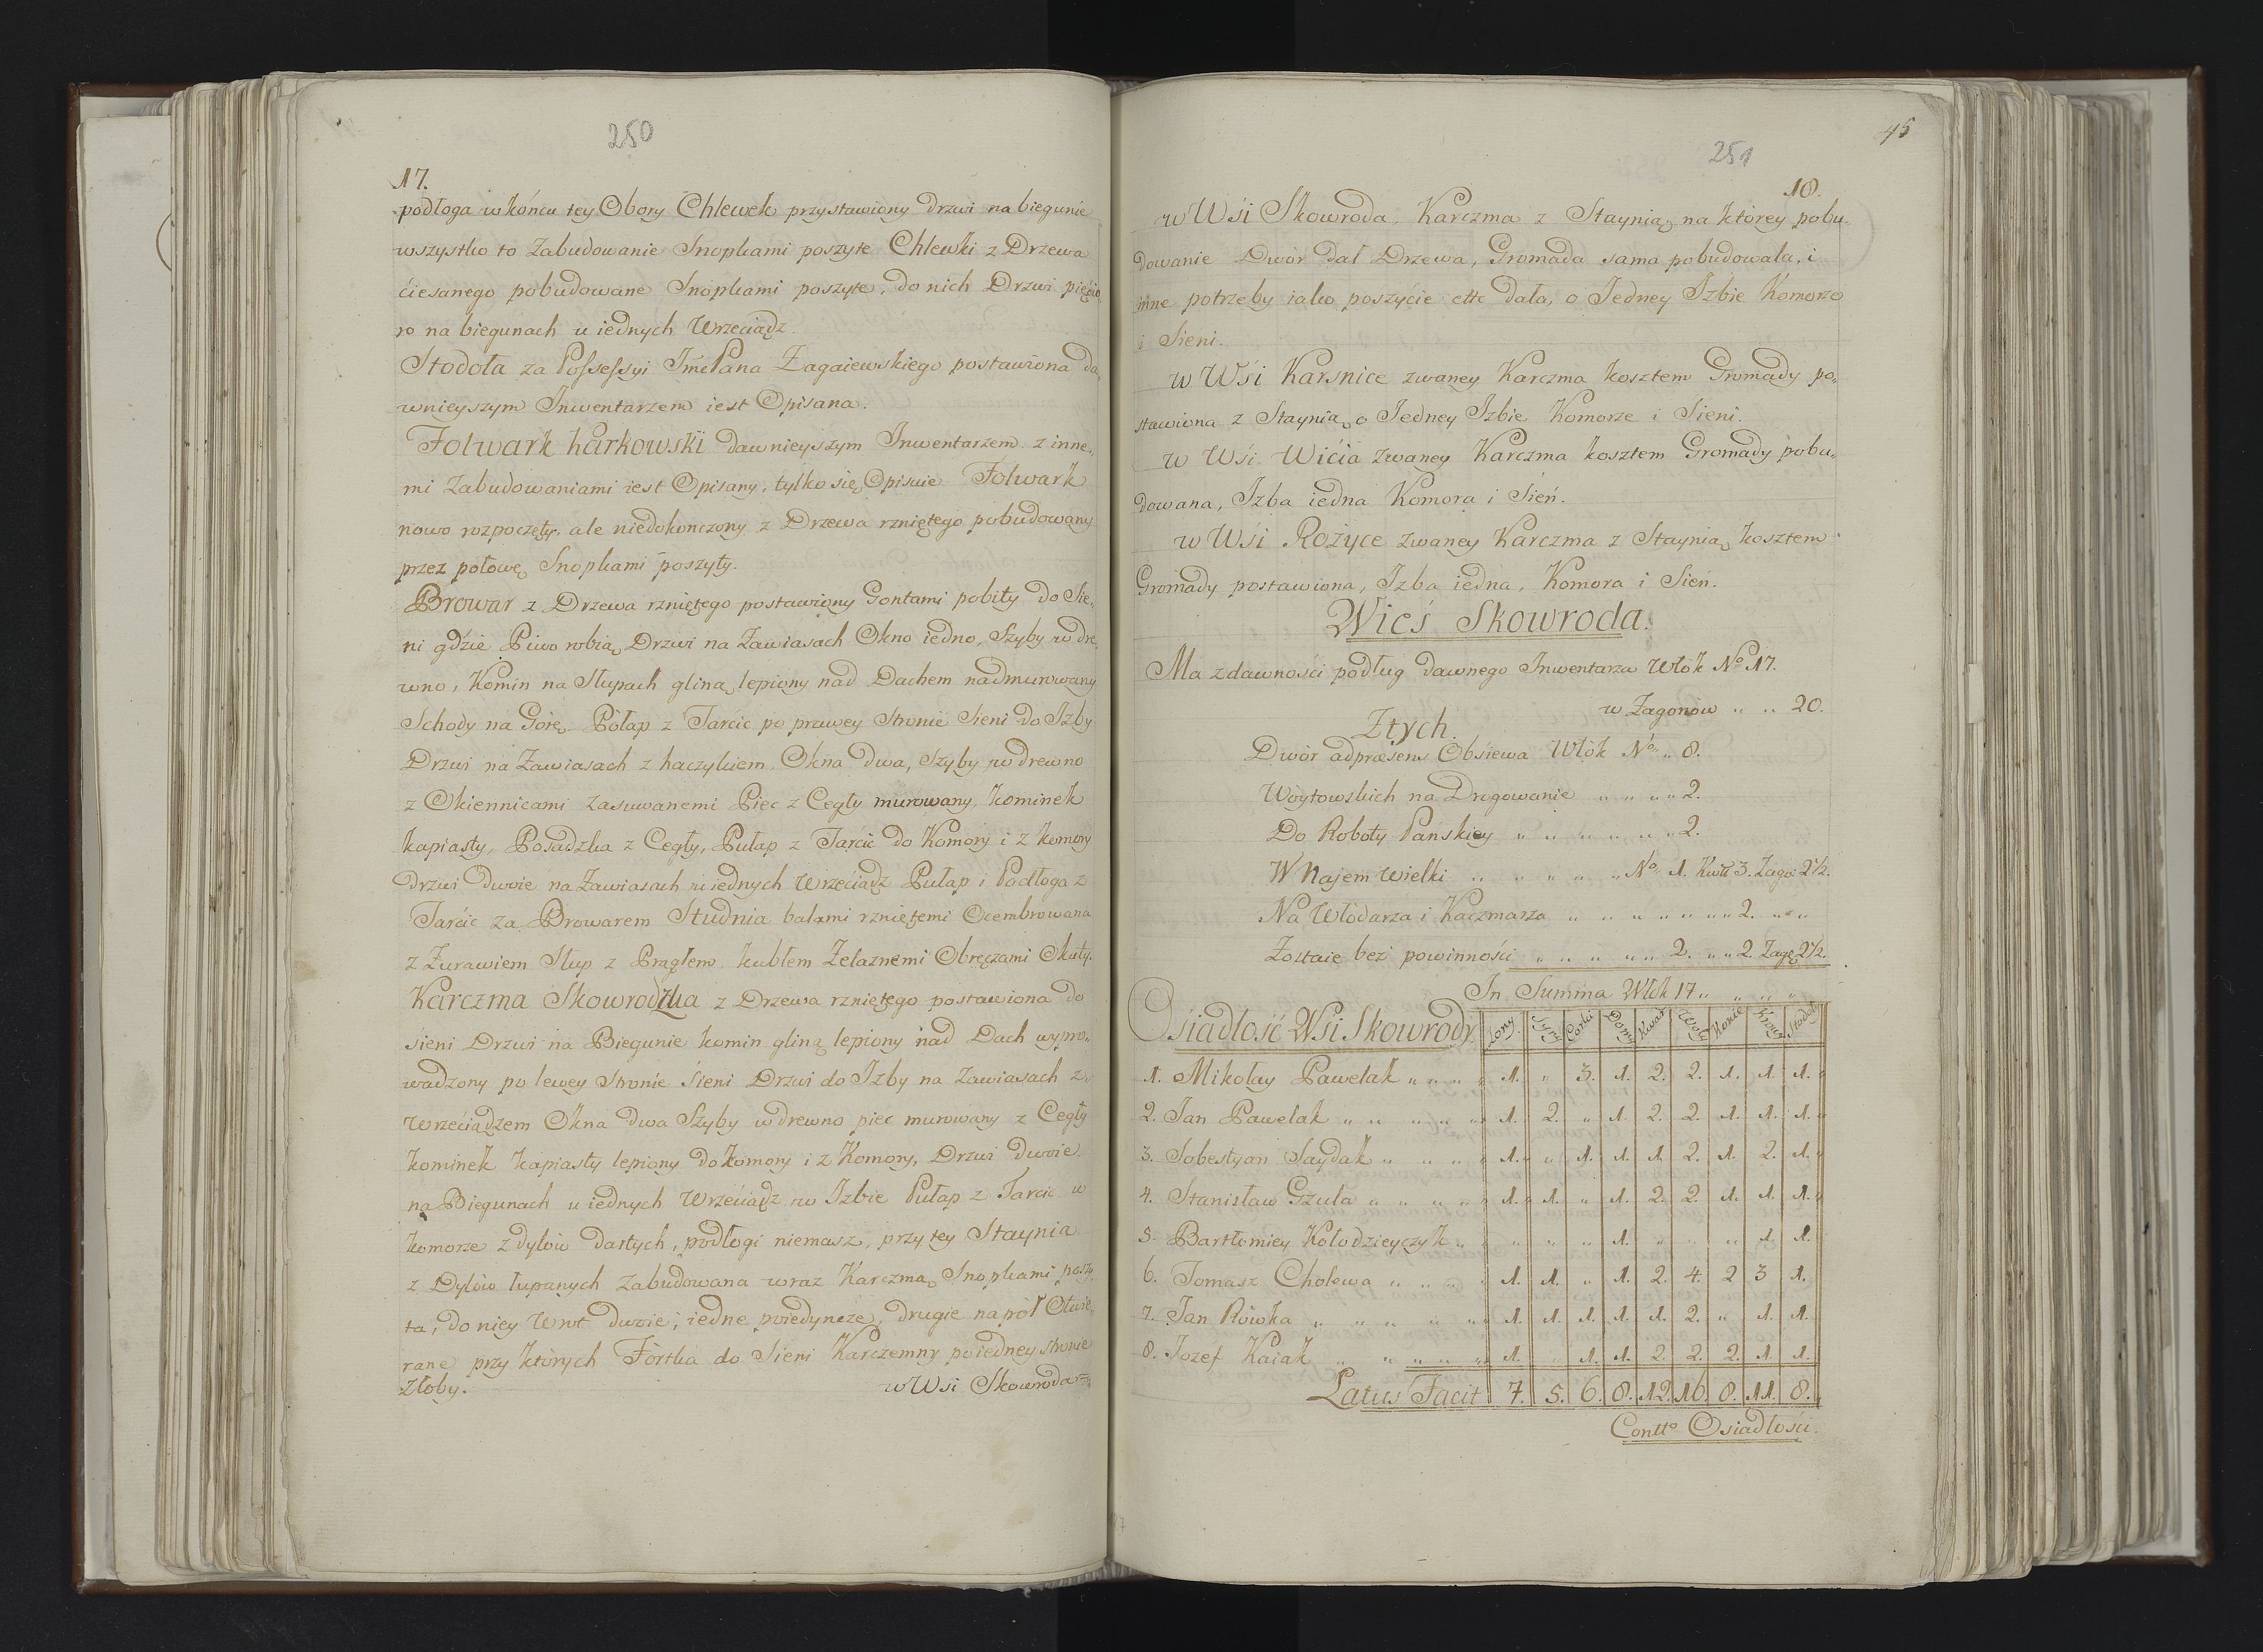 250
17.
podłoga w końcu tey Obory Chlewek przystawiony drzwi na biegunie
wszystko to Zabudowanie Snopkami poszyte Chlewki z Drzewa
ćiesanego pobudowane Snopkami poszyte, do nich Drzwi pięcio
ro na biegunach u iednych Wrzeciądz.
Stodoła za Possessyi JmćPana Zagaiewskiego postawiona da„
wnieyszym Inwentarzem iest Opisana.
Folwark karkowski dawnieyszym Inwentarzem z inne„
mi Zabudowaniami iest Opisany, tylko się Opisuie Folwark
nowo rozpoczęty, ale niedokonczony z Drzewa rzniętego pobudowany
przez połowę Snopkami poszyty.
Browar z Drzewa rzniętego postawiony Gontami pobity do Sie„
ni gdzie Piwo robią Drzwi na Zawiasach Okno iedno, Szyby w dre„
wno, Komin na Słupach gliną lepiony nad Dachem nadmurowany
Schody na Górę Półap z Tarcic po prawey stronie Sieni do Izby
Drzwi na Zawiasach z haczykiem Okna dwa, Szyby w drewno
z Okiennicami zasuwanemi Piec z Cegły murowany, kominek
kapiasty, Posadzka z Cegły, Pułap z Tarcic do Komory i z komory
drzwi Dwoie na Zawiasach u iednych Wrzeciądz Pułap i Podłoga z
Tarcic za Browarem Studnia balami rzniętemi Ocembrowana
z Zurawiem Słup z Prągłem kubłem Zelaznemi Obręczami Okuty.
Karczma Skowrodzka z Drzewa rzniętego postawiona do
sieni Drzwi na Biegunie komin gliną lepiony nad Dach wypro„
wadzony po lewey stronie sieni Drzwi do Izby na Zawiasach z
Wrzeciądzem Okna dwa Szyby w drewno piec murowany z Cegły
kominek kapiasty lepiony do komory i z Komory, Drzwi dwoie
na Biegunach u iednych Wrzeciądz w Izbie Pułap z Tarcic w
komorze z dylów dartych, podłogi niemasz, przy tey Staynia
z Dylów łupanych zabudowana wraz Karczmą Snopkami poszy„
ta, do niey Wrot dwoie, iedne poiedyncze, drugie na poł Otwie„
rane przy których Fórtka do Sieni Karczemny po iedney stronie
Złoby.
w Wsi Skowroda
45
251
18.
w Wśi Skowroda. Karczma z Staynią na którey pobu„
dowanie Dwór dał Drzewa, Gromada sama pobudowała, i
inne potrzeby iako poszycie ettc dała, o Jedney Izbie Komorze
i Sieni.
w Wśi Karsnice zwaney Karczma kosztem Gromady po„
stawiona z Staynią o Jedney Izbie Komorze i Sieni.
w Wśi Wićia zwaney Karczma kosztem Gromady pobu„
dowana, Izba iedna Komora i Sień.
w Wsi Rożyce zwaney Karczma z Staynią kosztem
Gromady postawiona, Izba iedna, Komora i Sień.
Wieś Skowroda.
Ma zdawności podług dawnego Inwentarza Włók No 17.
w Zagonów „ „ 20.
Ztych.
Dwór adpræsens Obsiewa Włók No „ 8.
Woytowskich na Drogowanie „ „ „ „ 2.
Do Roboty Pańskiey „ „ „ „ „ „ 2.
W Najem Wielki „ „ „ „ „ No 1. Kwr 3. Zago: 2½.
Na Włódarza i Kaczmarza „ „ „ „ „ „ „ 2. „ „
Zostaie bez powinności „ „ „ „ „ 2. „ „ 2. Zagę 2½.
In Summa Włók 17 „ „ „ „
Osiadłość Wsi Skowrody. Zony. Syny Corki Domy Kwar Woły Konie Krowy Stodoły
1. Mikołay Pawelak „ „ „ „ 1. „ 3. 1. 2. 2. 1. 1. 1.
2. Jan Pawelak „ „ „ „ „ 1. 2. „ 1. 2. 2. 1. 1. 1.
3. Sobestyan Saydak „ „ „ „ 1. „ 1. 1. 1. 2. 1. 2. 1.
4. Stanisław Gzula „ „ „ „ „ 1. 1. „ 1. 2. 2. 1. 1. 1.
5. Bartłomiey Kołodzieyczyk „ „ „ „ 1. „ „ „ 1. 1.
6. Tomasz Cholewa „ „ „ „ 1. 1. „ 1. 2. 4. 2 3 1.
7. Jan Rówka „ „ „ „ „ 1. 1. 1. 1. 1. 2. „ 1. 1.
8. Jozef Kaiak „ „ „ „ „ 1. „ 1. 1. 2. 2. 2. 1. 1.
Latus Facit 7. 5. 6. 8. 12. 16 8. 11. 8.
Contto Osiadłości.